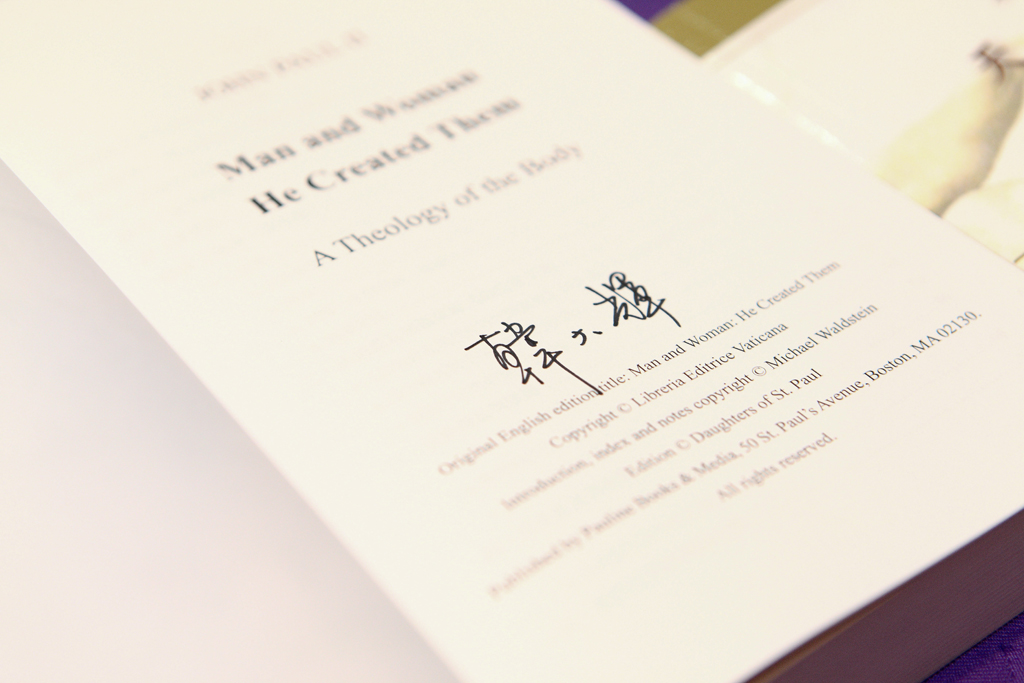 JOHN PAUL II
Man and Woman
He Created Them
A Theology of the Body
韓大輝
Original English edition title: Man and Woman: He Created Them
Copyright © Libreria Editrice Vaticana
Introduction, index and notes copyright © Michael Waldstein
Edition © Daughters of St. Paul
Published by Pauline Books & Media, 50 St. Paul's Avenue, Boston, MA 02130.
All rights reserved.